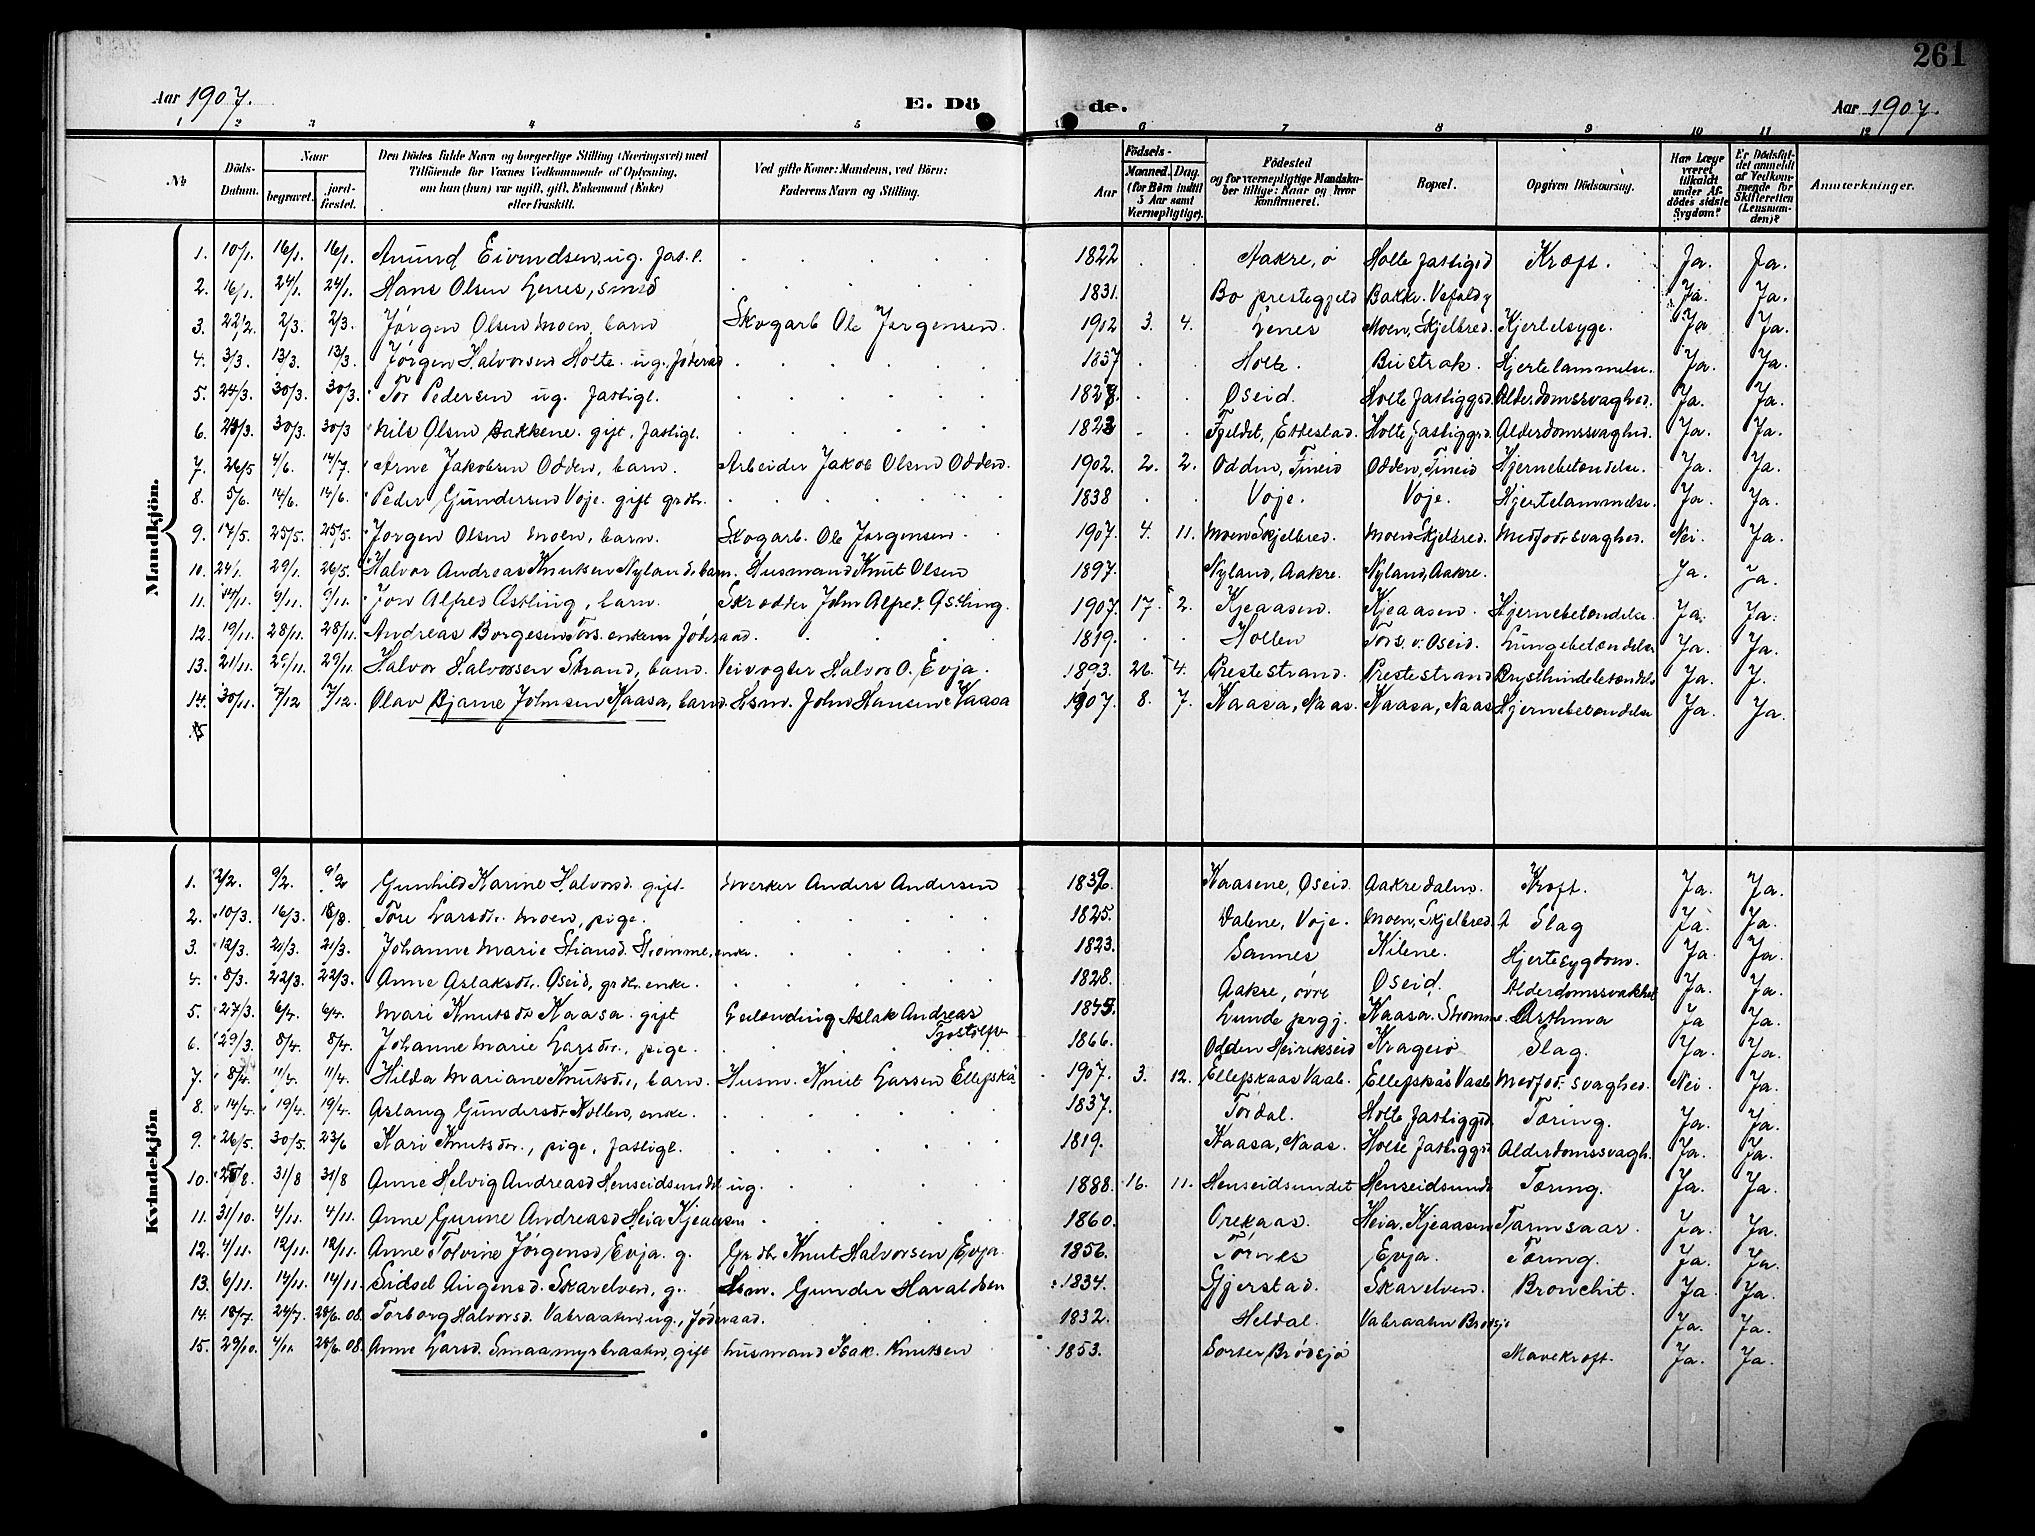 261
Aar 1907. E. Döde. Aar 1907.
1 2 3 4 5 6 7 8 9 10 11 12
№
Döds-Datum.
Naar begravet. jordfæstet.
Den Dödes fulde Navn og borgerlige Stilling (Næringsvei) med Tilföiende for Voxnes Vedkommende af Oplysning, om han (hun) var ugift, gift, Enkemand (Enke) eller fraskilt.
Ved gifte Koner: Mandens, ved Börn: Faderens Navn og Stilling.
Födsels- Aar Maaned. Dag. (for Börn indtil 5 Aar samt Værnepligtige).
Födested og for værnepligtige Mandskaber tillige: Naar og hvor konfirmeret.
Bopæl.
Opgiven Dödsaarsag.
Har Læge været tilkaldt under Afdödes sidste Sygdom?
Er Dödsfaldet anmeldt af Vedkommende for Skifteretten (Lensmanden)?
Anmærkninger.
Mandkjön.
1. 10/1. 16/1. 16/1. Anund Eivindsen, ug. fas.l. 1822 Aakre, ø Holte fastigd Kræft. Ja. Ja.
2. 16/1. 24/1. 24/1. Hans Olsen Lenes, smed 1831. Bo prestegjeld Bakke. Ja. Ja.
3. 22/2. 2/3. 2/3. Jørgen Olsen Moen, barn Skogarb Ole Jørgensen. 1902 3. 4. Lenes Moen, Skjelbred. Hjertesyge. Ja Ja.
4. 3/3. 13/3. 13/3. Jørgen Halvorsen Holte. ug. 1857 Holte. Bustrak. Hjertelammelse. Ja. Ja.
5. 24/3. 30/3. 30/3. Tor Pedersen ug. fastigl. 1828. Øseid. Holte fastiggd. Alderdomssvaghed. Ja. Ja.
6. 23/3. 30/3. 30/3 Nils Olsen Bakkene. gift, fastigl. 1823 Fjeldet, Ettestad. Holte fastiggd. Alderdomssvaghed. Ja. Ja.
7. 26/5 4/6. 14/7. Arne Jakobsen Odden, barn. Arbeider Jakob Olsen Odden. 1902. 2. 2. Odden, Fineid Odden, Fineid Hjernebetændelse. Ja. Ja.
8. 5/6. 14/6. 14/6. Peder Gundersen Voje. gift grdbr. 1838 Voje. Voje. Hjertelammelse. Ja. Ja.
9. 17/5. 25/5. 25/5. Jørgen Olsen Moen, barn. Skogarb. Ole Jørgensen. 1907. 4. 11. Moen Skjelbred. Moen Skjelbred. Medfød. svaghed. Nei. Ja.
10. 24/1. 29/1. 26/5. Halvor Andreas Knutsen Nyland, barn. Husmand Knut Olsen 1897. Nyland, Aakre. Nyland, Aakre. Ja. Ja.
11. 4/11. 9/11. 9/11. Jon Alfred Østling, barn. Skrædder John Alfred Østling. 1907. 17. 2. Kjeaasen. Kjeaasen. Hjernebetændelse. Ja. Ja.
12. 19/11. 28/11. 28/11. Andreas Borgesen Tors. enkem 1819. Hollen Tors. v. Øseid. Lungebetændelse Ja. Ja.
13. 21/11. 29/11. 29/11. Halvor Halvorsen Strand, barn. Veivogter Halvor O. Evja. 1893. 26. 4. Prestestrand. Prestestrand Brysthindebetændelse Ja. J.
14. 30/11. 7/12 7/12. Olav Bjarne Johnsen Kaasa, barn. Hsm. John Hansen Kaasa 1907. 8. 7. Kaasa, Naas. Kaasa, Naas Hjernebetændelse Ja. Ja.
15
Kvindekjön
1. 2/2. 9/2. 9/2 Gunhild Karine Halvorsd. gift. Anders Andersen 1839. Kaasene, Øseid. Aakredalen. Kræft. Ja. Ja.
2. 10/3. 16/3. 18/8. Tore Larsdtr. Moen, pige. 1825. Dalene, Voje. Moen, Skjelbred. Slag Ja. Ja.
3. 12/3. 21/3. 21/3. Johanne Marie Stiansd. Strømme, enke. 1823. Sannes Kilene. Hjertesygdom. Ja. Ja.
4. 8/3. 22/3. 22/3. Anne Aslaksdtr. Øseid, grdbr. enke. 1828. Aakre, øvre Øseid. Alderdomssvakhet Ja. Ja.
5. 27/3. 6/4. 6/4. Mari Knutsdtr Kaasa. gift Aslak Andreas Tjostolfsen 1845. Lunde prgj. Kaasa. Strømme. Asthma Ja Ja.
6. 29/3. 8/4. 8/4. Johanne Marie Larsdtr., pige. 1866. Odden Henrikseid Kragerø Slag. Ja. Ja.
7. 8/4. 11/4. 11/4. Hilda Mariane Knutsdtr., barn. Husm. Knut Larsen Ellefskås 1907. 3. 12. Ellefskaas Vaab. Ellefskås Vaab. Medfød. svaghed. Nei. Ja.
8. 14/4. 19/4. 19/4. Aslaug Gundersdtr Hollen, enke. 1837. Tørdal. Holte fastiggd Tæring. Ja. Ja.
9. 26/5. 30/5. 23/6 Kari Knutsdtr., pige, fastigl. 1819. Kaasa, Naas. Holte fastiggd Alderdomssvagh. Ja. Ja.
10. 25/8. 31/8 31/8 Anne Helvig Andreasd Henseidsundet ug. 1888. 16. 11. Henseidsundet Henseidsundet Tæring. Ja. Ja.
11. 31/10. 4/11. 4/11. Anne Gurine Andreasd Heia Kjeaasen 1860. Orekaas. Heia. Kjeaasen Tarmsaar. Ja. Ja.
12. 4/11. 12/11. 12/11. Anne Tolvine Jørgensd Evja. g. Grdbr Knut Halvorsen Evja. 1856. Tørnes Evja. Tæring. Ja. Ja.
13. 6/11. 14/11. 14/11. Sidsel Augensd. Skarelven, g. Hsm. Gunder Haraldsen 1834. Gjerstad. Skarelven. Bronchit. Ja Ja.
14. 18/7. 24/7. 28/6. 08. Torborg Halvorsd. Vabraaten, ug. 1832. Heldal. Vabraaten Brødsjø Ja. Ja.
15. 29/10. 4/11. 28/6. 08. Anne Larsd. Smaamyrbraaten, gift Husmand Isak Knutsen 1853. Sorter, Brødsjø Mavekræft. Ja. Ja.